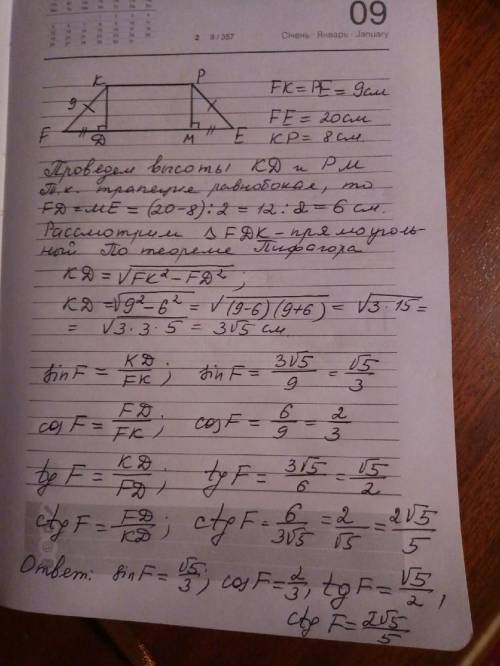 09
2 9 / 357 Січень · Январь · January
K P
9
F D M E
FK = PE = 9см
FE = 20см
KP = 8см.
Проведем высоты KD и PM
Т.к. трапеция равнобокая, то
FD = ME = (20-8) : 2 = 12 : 2 = 6 см.
Рассмотрим △ FDK - прямоуголь-
ный По теореме Пифагора
KD = √FK² - FD² ;
KD = √9² - 6² = √(9-6)(9+6) = √3 · 15 =
= √3 · 3 · 5 = 3√5 см.
sin F = KD/FK ; sin F = 3√5/9 = √5/3
cos F = FD/FK ; cos F = 6/9 = 2/3
tg F = KD/FD ; tg F = 3√5/6 = √5/2
ctg F = FD/KD ; ctg F = 6/3√5 = 2/√5 = 2√5/5
Ответ: sin F = √5/3 ; cos F = 2/3, tg F = √5/2 ,
ctg F = 2√5/5